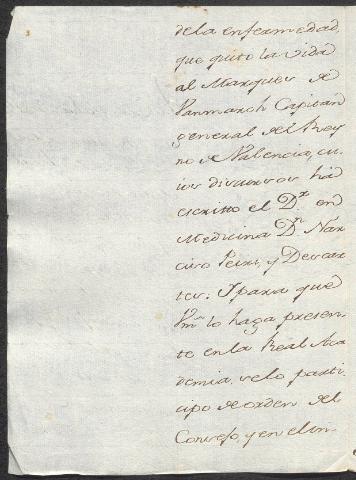 dela enfermedad,
que quitò la vida
al Marques de
Vanmarch Capitan
general del Rey
no de Valencia, cu
ios discursos ha
escritto el D.r en
Medicina D.n Nar
ciso Peixi, y Descar
ter: I para que
Vm. lo haga presen
te en la Real Aca
demia, se lo parti
cipo de orden del
Consejo, y en el in